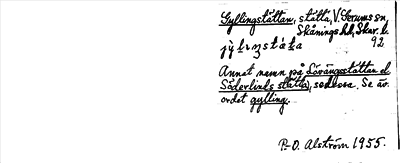 Gyllingstättan, stätta, V. Gerums sn,
Skånings hd, Skar. l.
92
Annat namn på Lövängsstättan el
Söderlinds stätta), se dessa. Se äv.
ordet gylling.
P-O. Alström 1955.